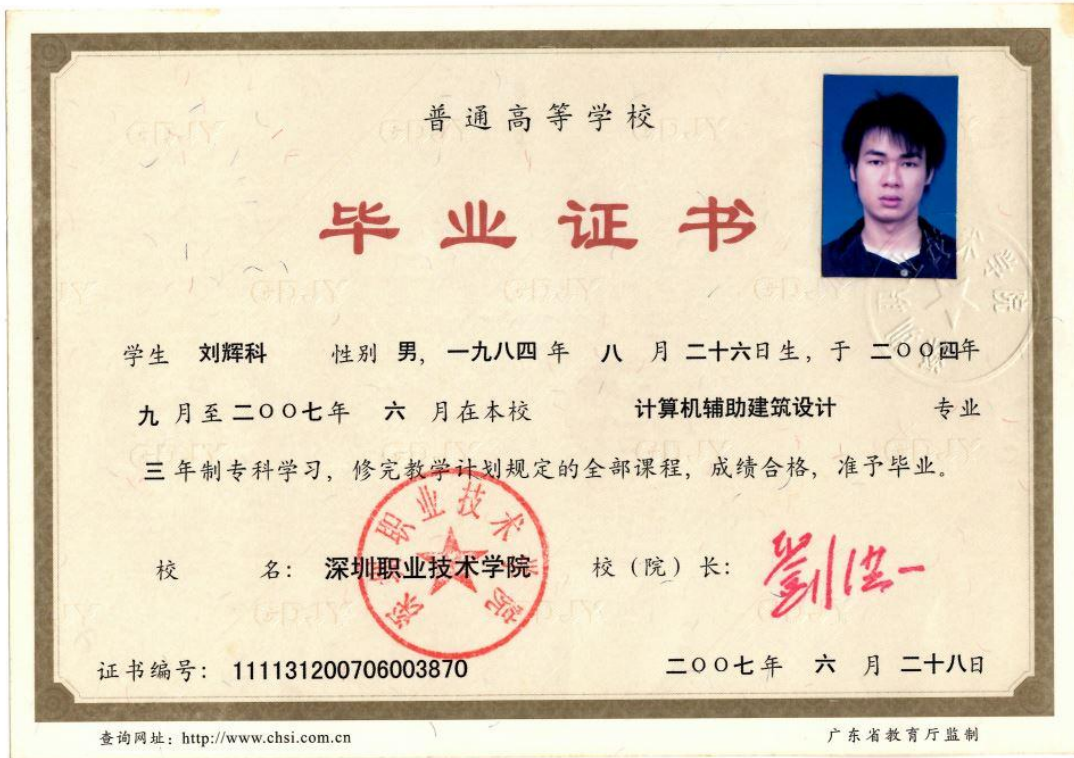 普通高等学校
毕业证书
学生 刘辉科 性别 男，一九八四年 八 月 二十六日生，于 二○○四年
九 月至二○○七年 六 月在本校 计算机辅助建筑设计 专业
三 年制专科学习，修完教学计划规定的全部课程，成绩合格，准予毕业。
校 名：深圳职业技术学院 校（院）长：
证书编号：111131200706003870 二○○七年 六 月 二十八日
查询网址：http://www.chsi.com.cn 广东省教育厅监制